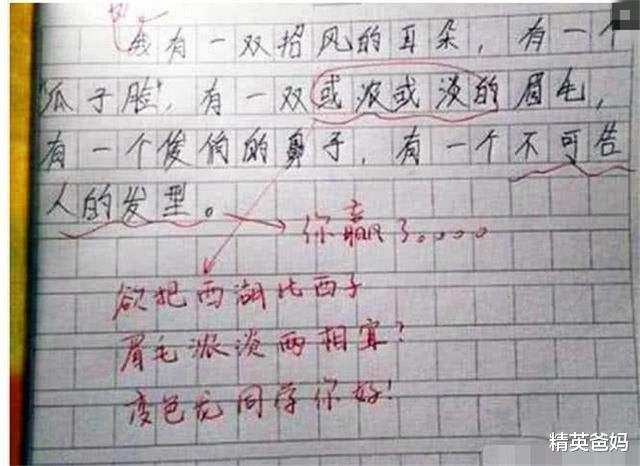 我有一双招风的耳朵，有一个
"瓜子脸"，有一双或浓或淡的眉毛，
有一个俊俏的鼻子，有一个不可告
人的发型。
你赢了。。。。
欲把西湖比西子
眉毛浓淡两相宜？
变色龙同学你好！
精英爸妈